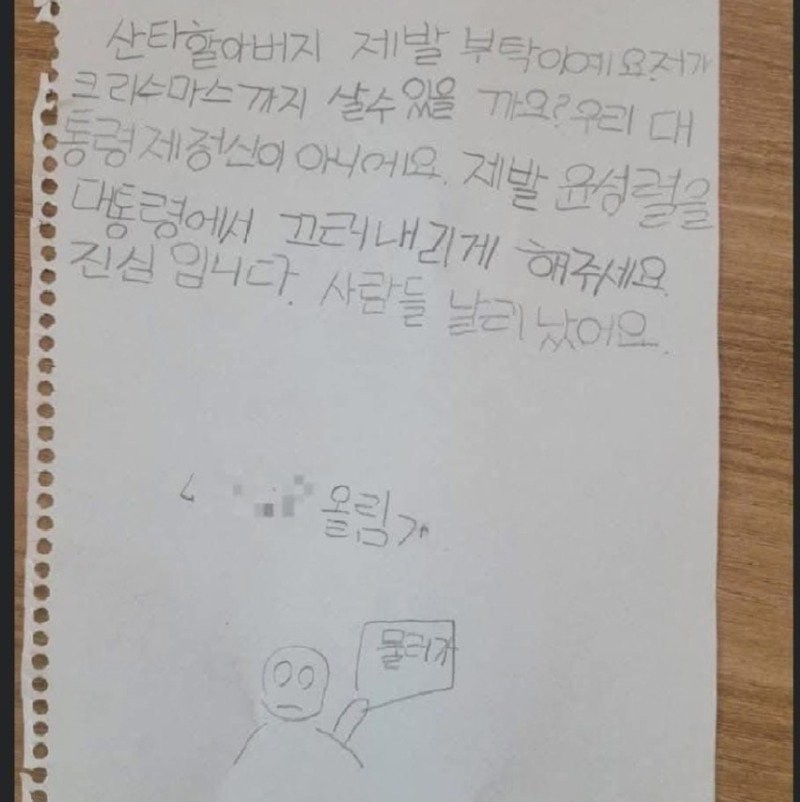 산타할아버지 제발 부탁이예요저가
크리수마스까지 살수있을 까요?우리 대
통령제정신이 아니에요. 제발 윤성렬을
대통령에서 끄터내리게 해주세요
진실입니다. 사람들 날리났어요.
올림
물러가